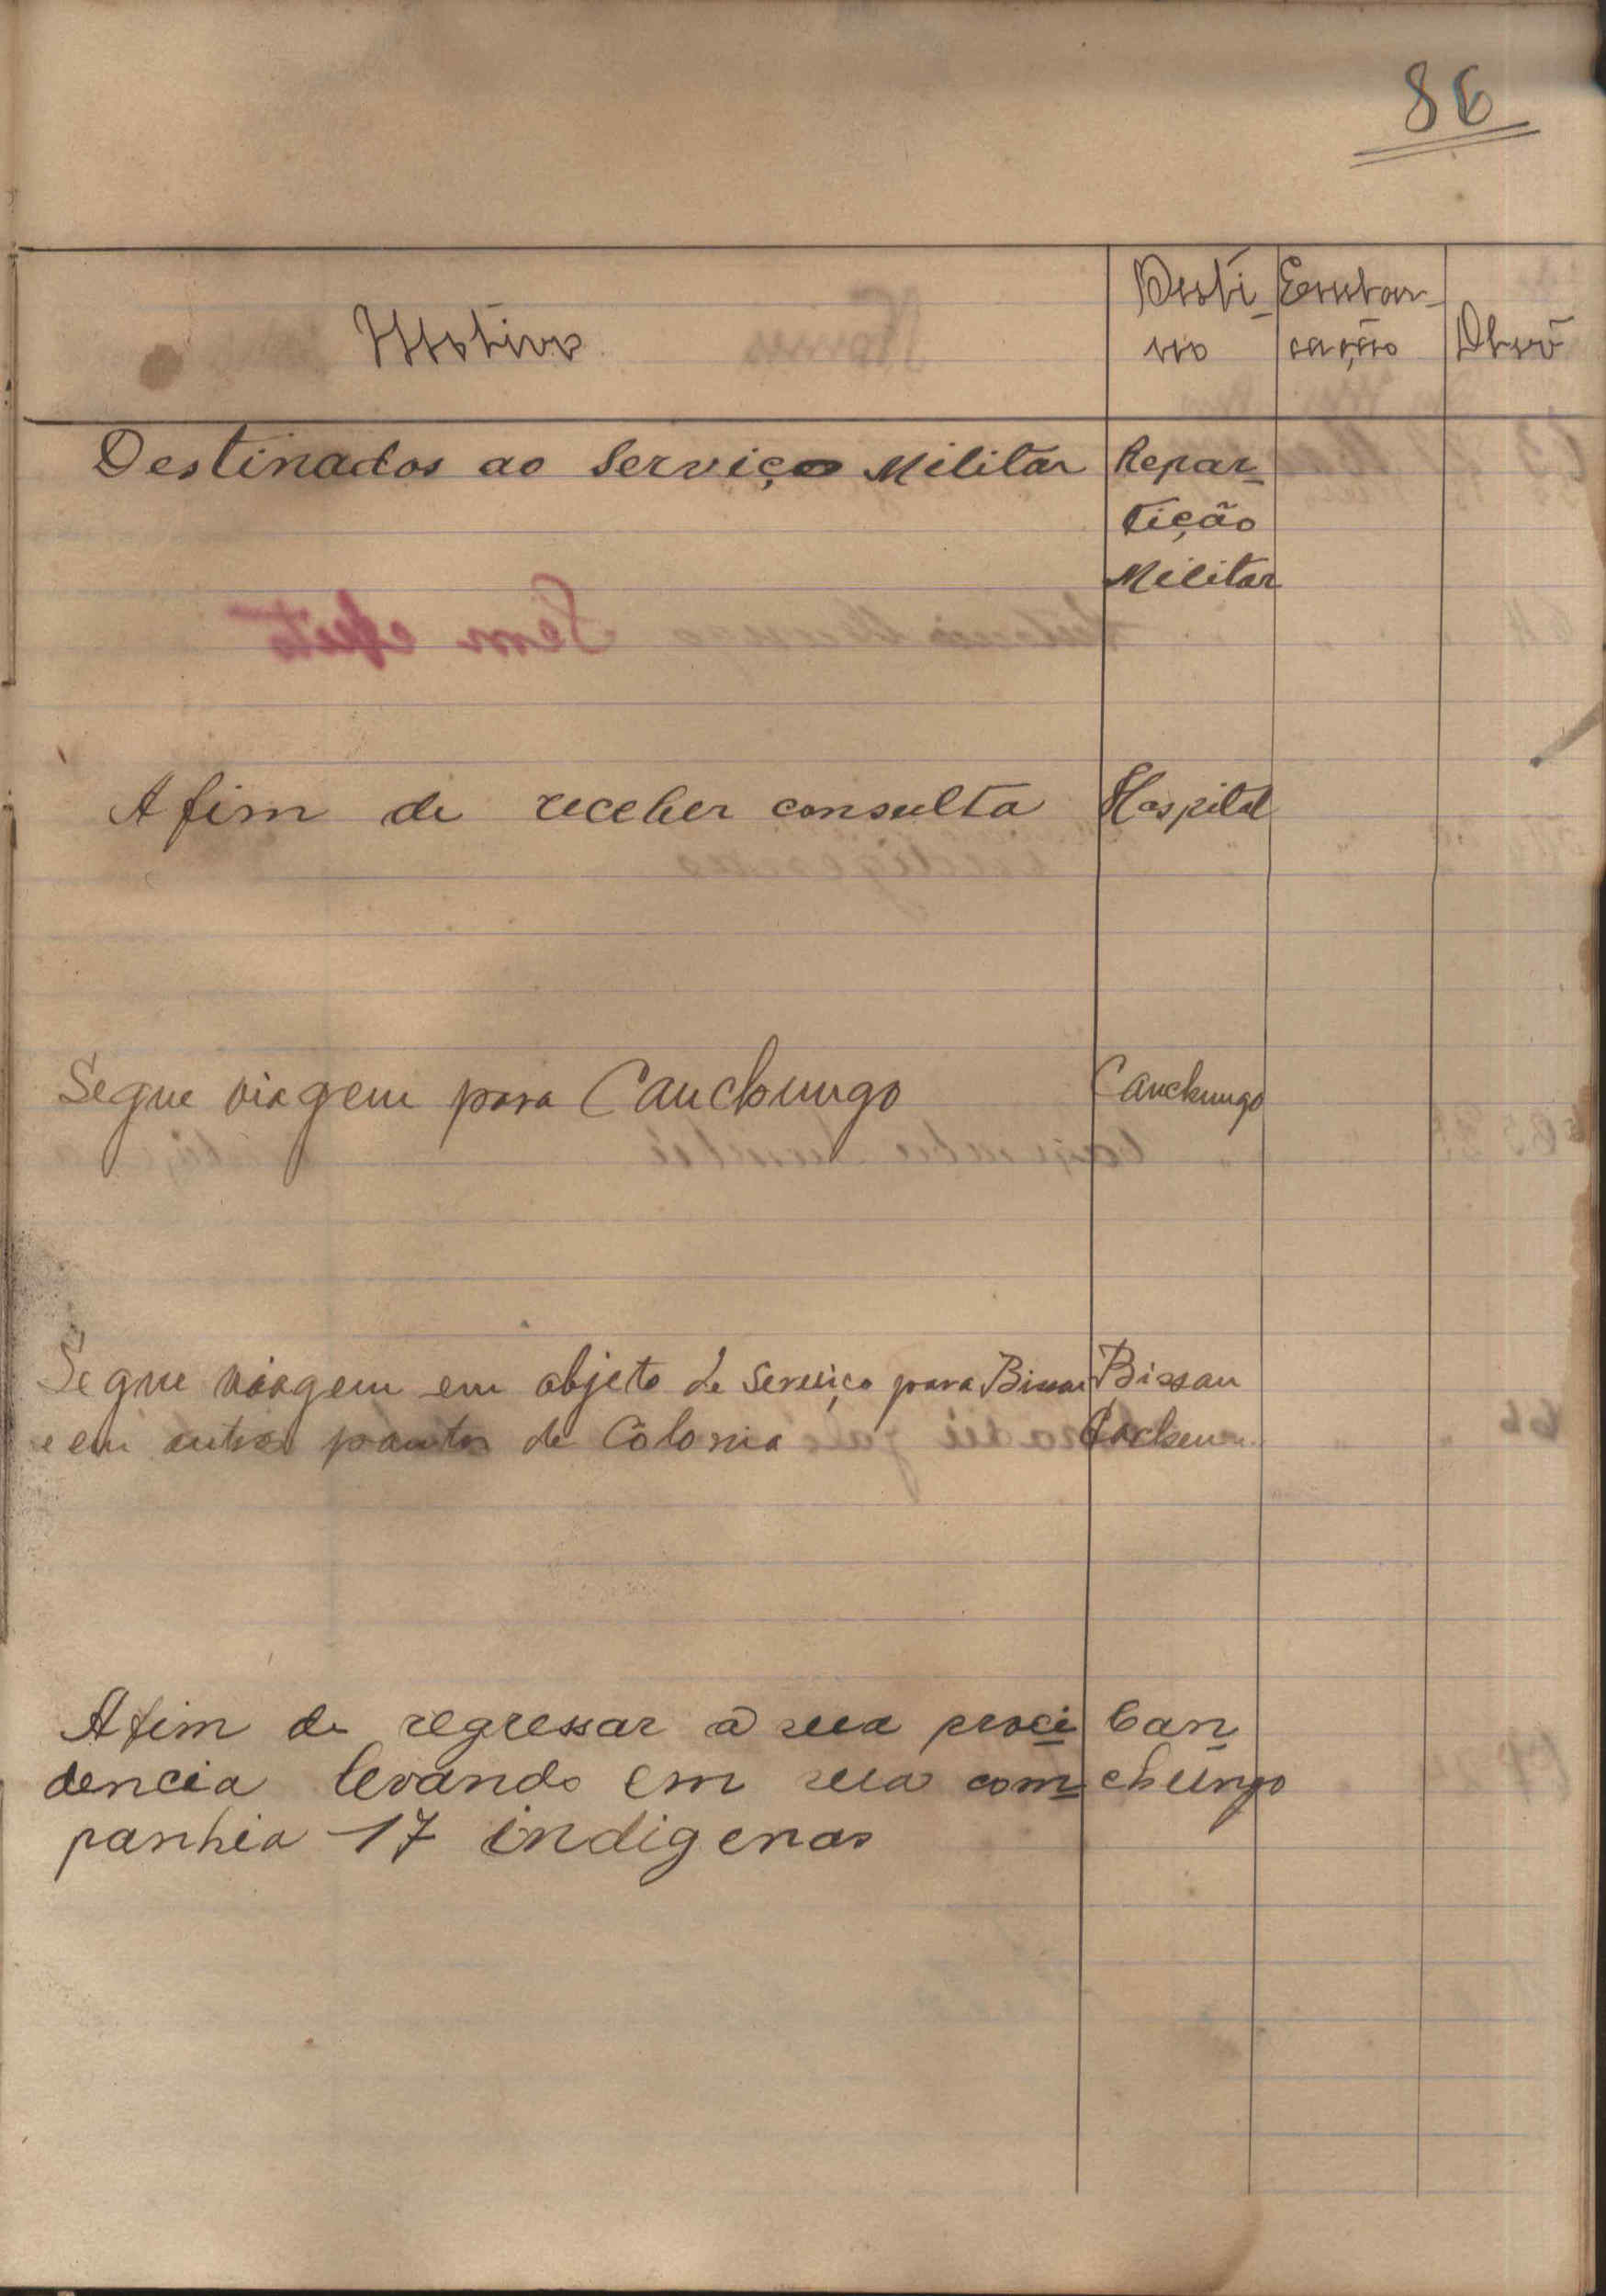 86
Motivo
Desti-
no
Embar-
cação
Obsv
Destinados ao Serviço Militar
Repar-
tição
Militar
Sem efeito
Afim de receber consulta
Hospital
indigenas
Segue viagem para Canchungo
Canchungo
Segue viagem em objeto de Serviço para Bissau
Bissau
e em outros pontos da Colonia
Cacheu
Afim de regressar a sua proci
Can
dencia levando em sua com
chungo
panhia 17 indigenas